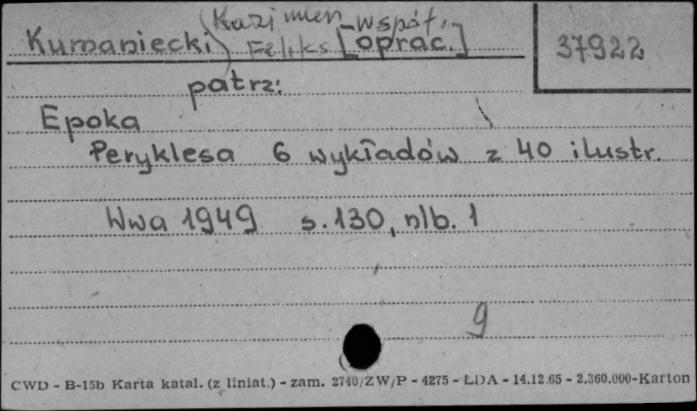 Kumaniecki (Kazimierz Feliks) współ. [oprac.]
37922
patrz:
Epoka
Peryklesa 6 wykładów z 40 ilustr.
Wwa 1949 s. 130, nlb. 1
9
CWD - B-15b Karta katal. (z liniat.) - zam. 2740/ZW/P - 4275 - ŁDA - 14.12.65 - 2.360.000-Karton